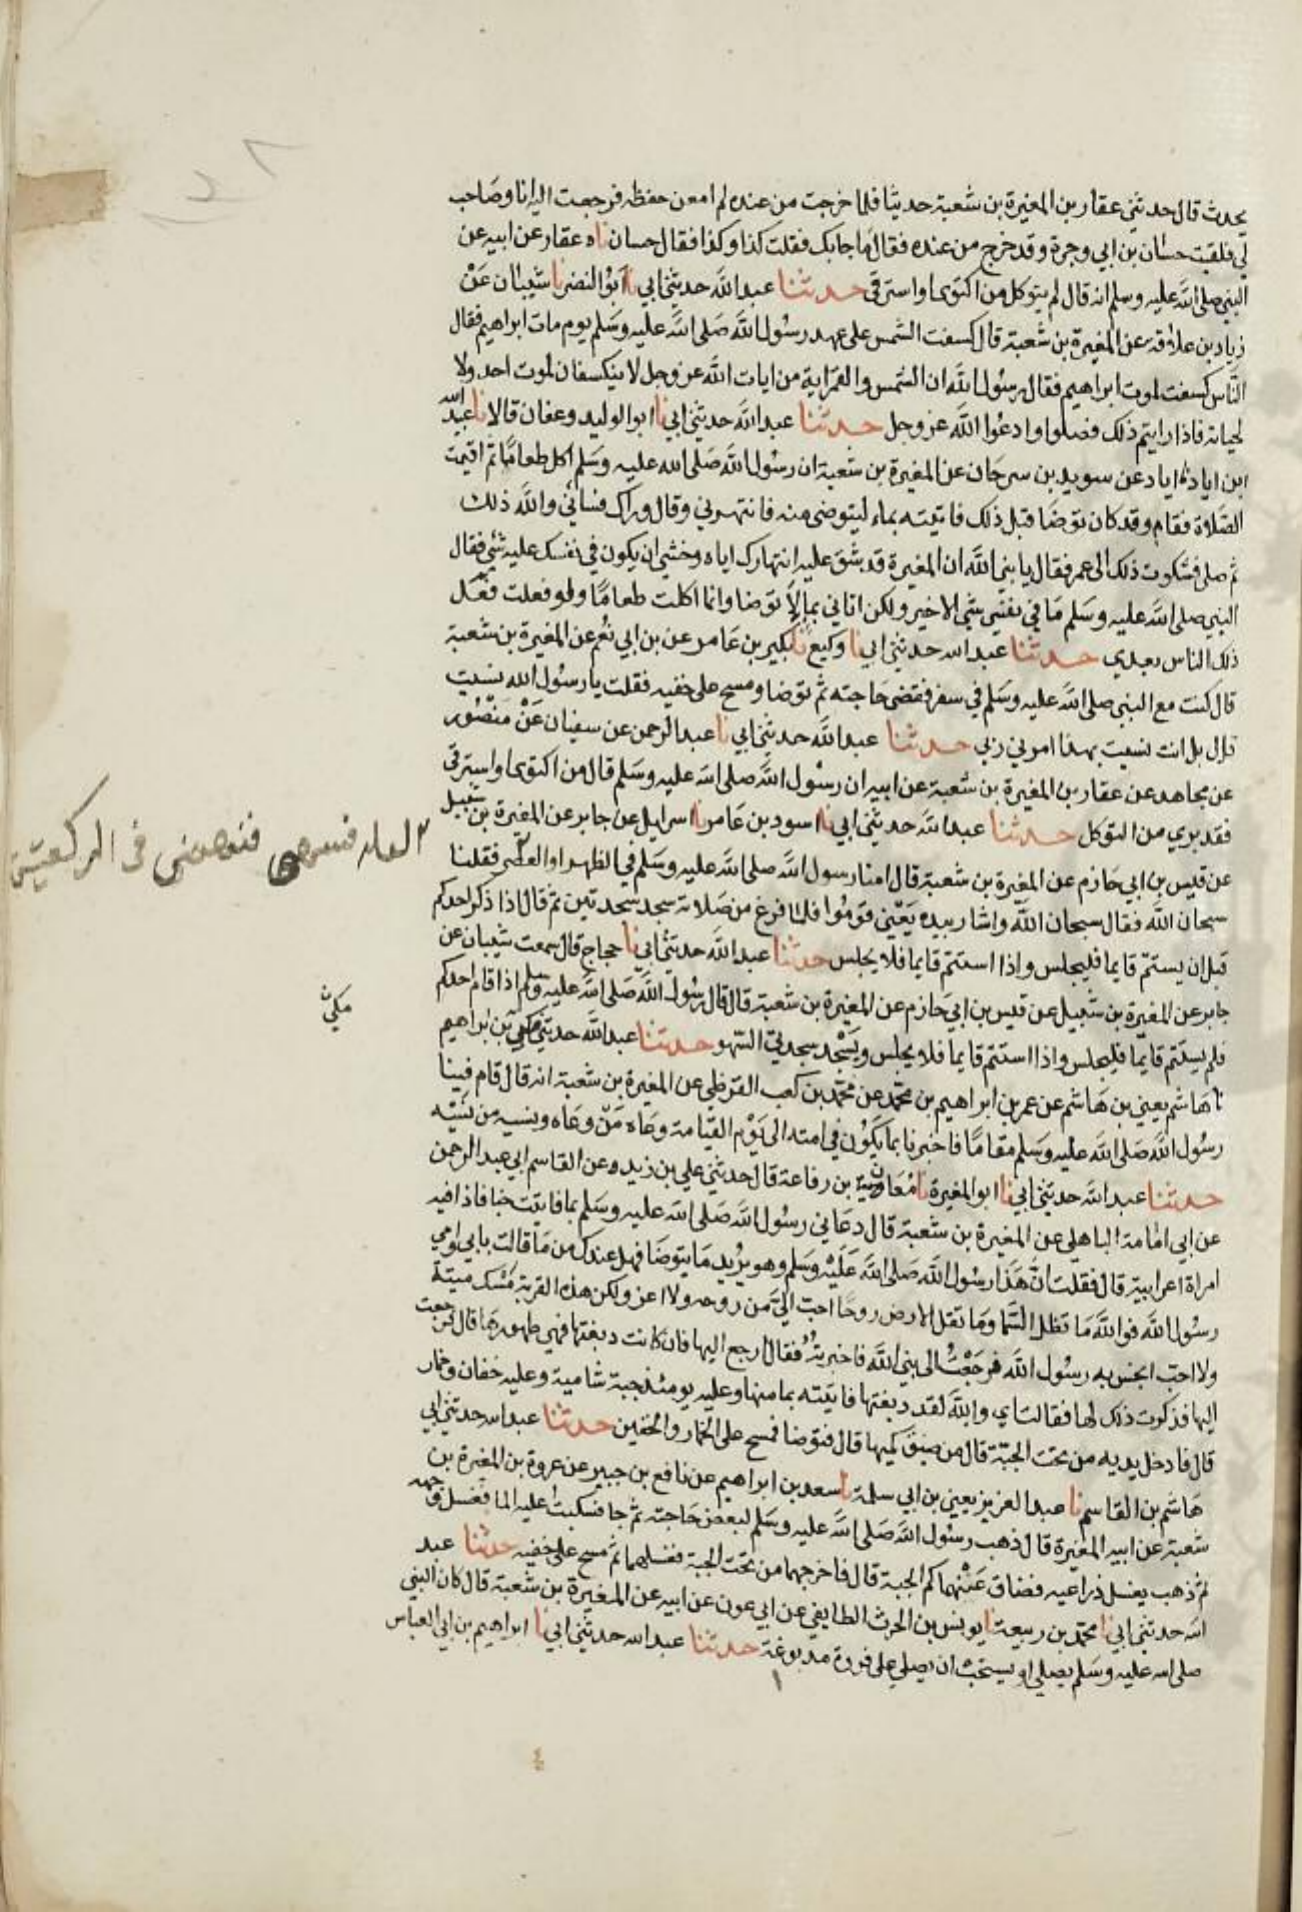 يحدث قال حدثني عقار بن المغيرة بن شعبة حديثا فلما خرجت من عنده لم امعن حفظه فرجعت اليه انا وصاحب
لي فلقيت حسان بن ابي وجرة وقد خرج من عنده فقال ما جابك فقلت كذا وكذا فقال حسان ناه عقار عن ابيه عن
النبي صلى الله عليه وسلم انه قال لم يتوكل من اكتوى او استرقى حدثنا عبد الله حدثني ابي نا ابو النضر نا شيبان عن
زياد بن علاقة عن المغيرة بن شعبة قال كسفت الشمس على عهد رسول الله صلى الله عليه وسلم يوم مات ابراهيم فقال
الناس كسفت لموت ابراهيم فقال رسول الله ان الشمس والقمر اية من ايات الله عز وجل لا ينكسفان لموت احد ولا
لحياته فاذا رايتم ذلك فصلوا وادعوا الله عز وجل حدثنا عبد الله حدثني ابي نا ابو الوليد وعفان قالا نا عبيد الله
ابن اياد نا اياد عن سويد بن سرحان عن المغيرة بن شعبة ان رسول الله صلى الله عليه وسلم اكل طعاما ثم اقيمت
الصلاة فقام وقد كان توضا قبل ذلك فاتيته بماء ليتوضى منه فانتهرني وقال وراك فساني والله ذلك
ثم صلى فشكوت ذلك الى عمر فقال يا نبي الله ان المغيرة قد شق عليه انتهارك اياه وخشي ان يكون في نفسك عليه شي فقال
النبي صلى الله عليه وسلم ما في نفسي شي الا خير ولكن اتاني بما لا توضا وانما اكلت طعاما ولو فعلت فعل
ذلك الناس بعدي حدثنا عبد الله حدثني ابي نا وكيع نا بكير بن عامر عن بن ابي نعم عن المغيرة بن شعبة
قال كنت مع النبي صلى الله عليه وسلم في سفر فقضى حاجته ثم توضا ومسح على خفيه فقلت يا رسول الله نسيت
قال بل انت نسيت بهذا امرني ربي حدثنا عبد الله حدثني ابي نا عبد الرحمن عن سفيان عن منصور
عن مجاهد عن عقار بن المغيرة بن شعبة عن ابيه ان رسول الله صلى الله عليه وسلم قال من اكتوى او استرقى
فقد بري من التوكل حدثنا عبد الله حدثني ابي نا اسود بن عامر نا اسرايل عن جابر عن المغيرة بن شبيل
عن قيس بن ابي حازم عن المغيرة بن شعبة قال امنا رسول الله صلى الله عليه وسلم في الظهر او العصر فقلنا
سبحان الله فقال سبحان الله واشار بيده يعني قوموا فلما فرغ من صلاته سجد سجدتين ثم قال اذا ذكر احدكم
قبل ان يستتم قايما فليجلس واذا استتم قايما فلا يجلس حدثنا عبد الله حدثني ابي نا حجاج قال سمعت شيبان عن
جابر عن المغيرة بن شبيل عن قيس بن ابي حازم عن المغيرة بن شعبة قال قال رسول الله صلى الله عليه وسلم اذا قام احدكم
فلم يستتم قايما فليجلس واذا استتم قايما فلا يجلس ويسجد سجدتي السهو حدثنا عبد الله حدثني مكي بن ابراهيم
نا هاشم يعني بن هاشم عن عمر بن ابراهيم بن محمد عن محمد بن كعب القرظي عن المغيرة بن شعبة انه قال قام فينا
رسول الله صلى الله عليه وسلم مقاما فاخبرنا بما يكون في امته الى يوم القيامة وعاه من وعاه ونسيه من نسيه
حدثنا عبد الله حدثني ابي نا ابو المغيرة نا معان بن رفاعة قال حدثني علي بن زيد وعن القاسم ابي عبد الرحمن
عن ابي امامة الباهلي عن المغيرة بن شعبة قال دعاني رسول الله صلى الله عليه وسلم بما فاتيت خبا فاذا فيه
امراة اعرابية قال فقلت ان هذا رسول الله صلى الله عليه وسلم وهو يريد ما يتوضا فهل عندك من ما قالت بابي وامي
رسول الله فوالله ما تظل السما وما تقل الارض روحا احب الي من روحه ولا اعز ولكن هذه القربة مسك ميتة
ولا احب انجس به رسول الله فرجعت الى نبي الله فاخبرته فقال ارجع اليها فان كانت دبغتها فهي طهورها قال فرجعت
اليها فذكرت ذلك لها فقالت اي والله لقد دبغتها فاتيته بما منها وعليه يومئذ جبة شامية وعليه خفان وخمار
قال فادخل يديه من تحت الجبة قال من ضيق كميها قال فتوضا فمسح على الخمار والخفين حدثنا عبد الله حدثني ابي
هاشم بن القاسم نا عبد العزيز يعني بن ابي سلمة نا سعد بن ابراهيم عن نافع بن جبير عن عروة بن المغيرة بن
شعبة عن ابيه المغيرة قال ذهب رسول الله صلى الله عليه وسلم لبعض حاجته ثم جا فسكبت عليه الما فغسل وجهه
ثم ذهب يغسل ذراعيه فضاق عنهما كم الجبة قال فاخرجهما من تحت الجبة فغسلهما ثم مسح على خفيه حدثنا عبد
الله حدثني ابي نا محمد بن ربيعة نا يونس بن الحرث الطايفي عن ابي عون عن ابيه عن المغيرة بن شعبة قال كان النبي
صلى الله عليه وسلم يصلي او يستحب ان يصلي على فروة مدبوغة حدثنا عبد الله حدثني ابي نا ابراهيم بن ابي العباس
فنهض في الركعتين
مكي